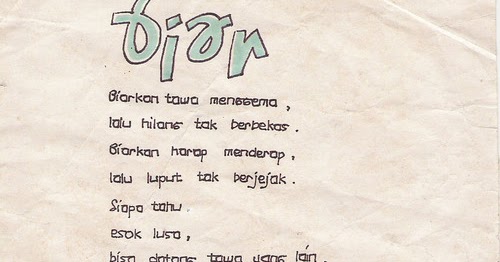 Biar
Biarkan tawa menggema,
lalu hilang tak berbekas.
Biarkan harap menderap,
lalu luput tak berjejak.
Siapa tahu
esok lusa,
bisa datang tawa yang lain.